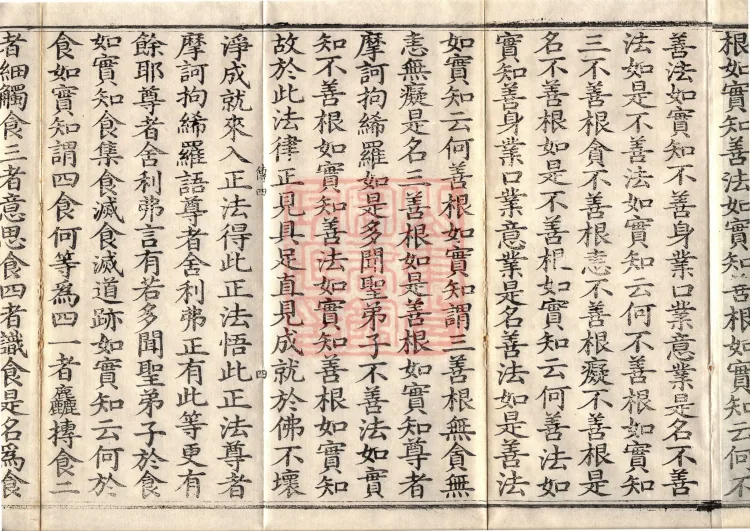 根如實知善法如實知善根如實知云何不
善法如實知不善身業口業意業是名不善
法如是不善法如實知云何不善根如實知
三不善根貪不善根恚不善根癡不善根是
名不善根如是不善根如實知云何善法如
實知善身業口業意業是名善法如是善法
如實知云何善根如實知謂三善根無貪無
恚無癡是名三善根如是善根如實知尊者
摩訶拘絺羅如是多聞聖弟子不善法如實
知不善根如實知善法如實知善根如實知
故於此法律正見具足直見成就於佛不壞
四 四
淨成就來入正法得此正法悟此正法尊者
摩訶拘絺羅語尊者舍利弗正有此等更有
餘耶尊者舍利弗言有若多聞聖弟子於食
如實知食集食滅食滅道跡如實知云何於
食如實知謂四食何等爲四一者麤摶食二
者細觸食三者意思食四者識食是名爲食